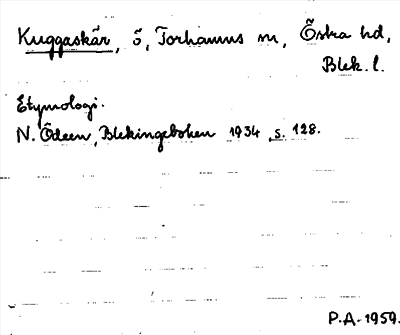 Kuggaskär, ö, Torhamns sn, Östra hd,
Blek. l.
Etymologi.
N. Ödeen, Blekingeboken 1934, s. 128.
P.A. 1959.